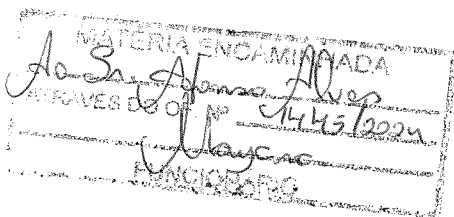 MATÉRIA ENCAMINHADA
Ao Sr. Afonso Alves
ATRAVÉS DO OF. Nº 1445/2024
Mayara
FUNCIONÁRIO